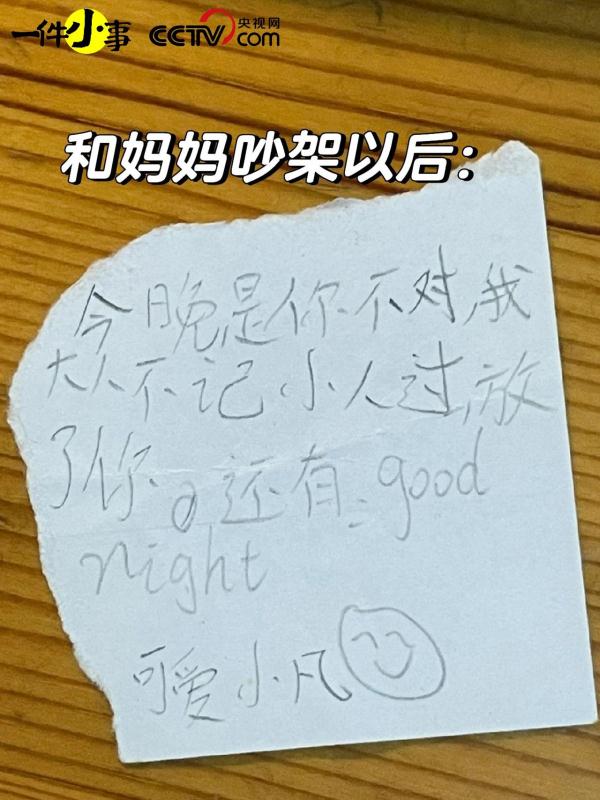 一件小事 CCTV.com 央视网
和妈妈吵架以后:
今晚是你不对,我
大人不记小人过,放
了你。还有:good
night
可爱小凡